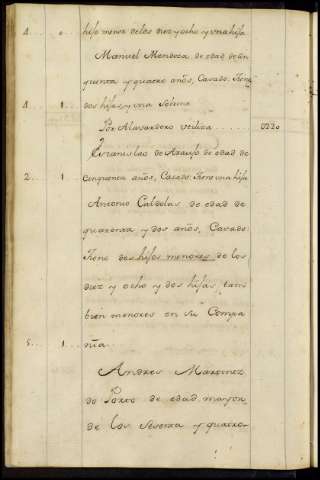 4 . . . . o . . hijo menor delos diez y ocho y una hija
Manuel Mendoza de edad de cin
quenta y quatro años, Casado. Tiene
4 . . . . 1 . . dos hijas y una
Por Alavardero utiliza . . . . . . . . . 0220
de Araujo de edad de
2 . . . . 1 . . Cinquenta años, Casado. Tiene una hija
Antonio Caldelas de edad de
quarenta y dos años, Casado
Tiene dos hijos menores de los
diez y ocho y dos hijas tam
bien menores en su Compa
5 . . . . 1 . . nia . .
Andres Martinez
do Porto de edad mayor
de los sesenta y quatro